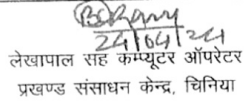 24/04/24
लेखापाल सह कम्प्यूटर ऑपरेटर
प्रखण्ड संसाधन केन्द्र, चिनिया